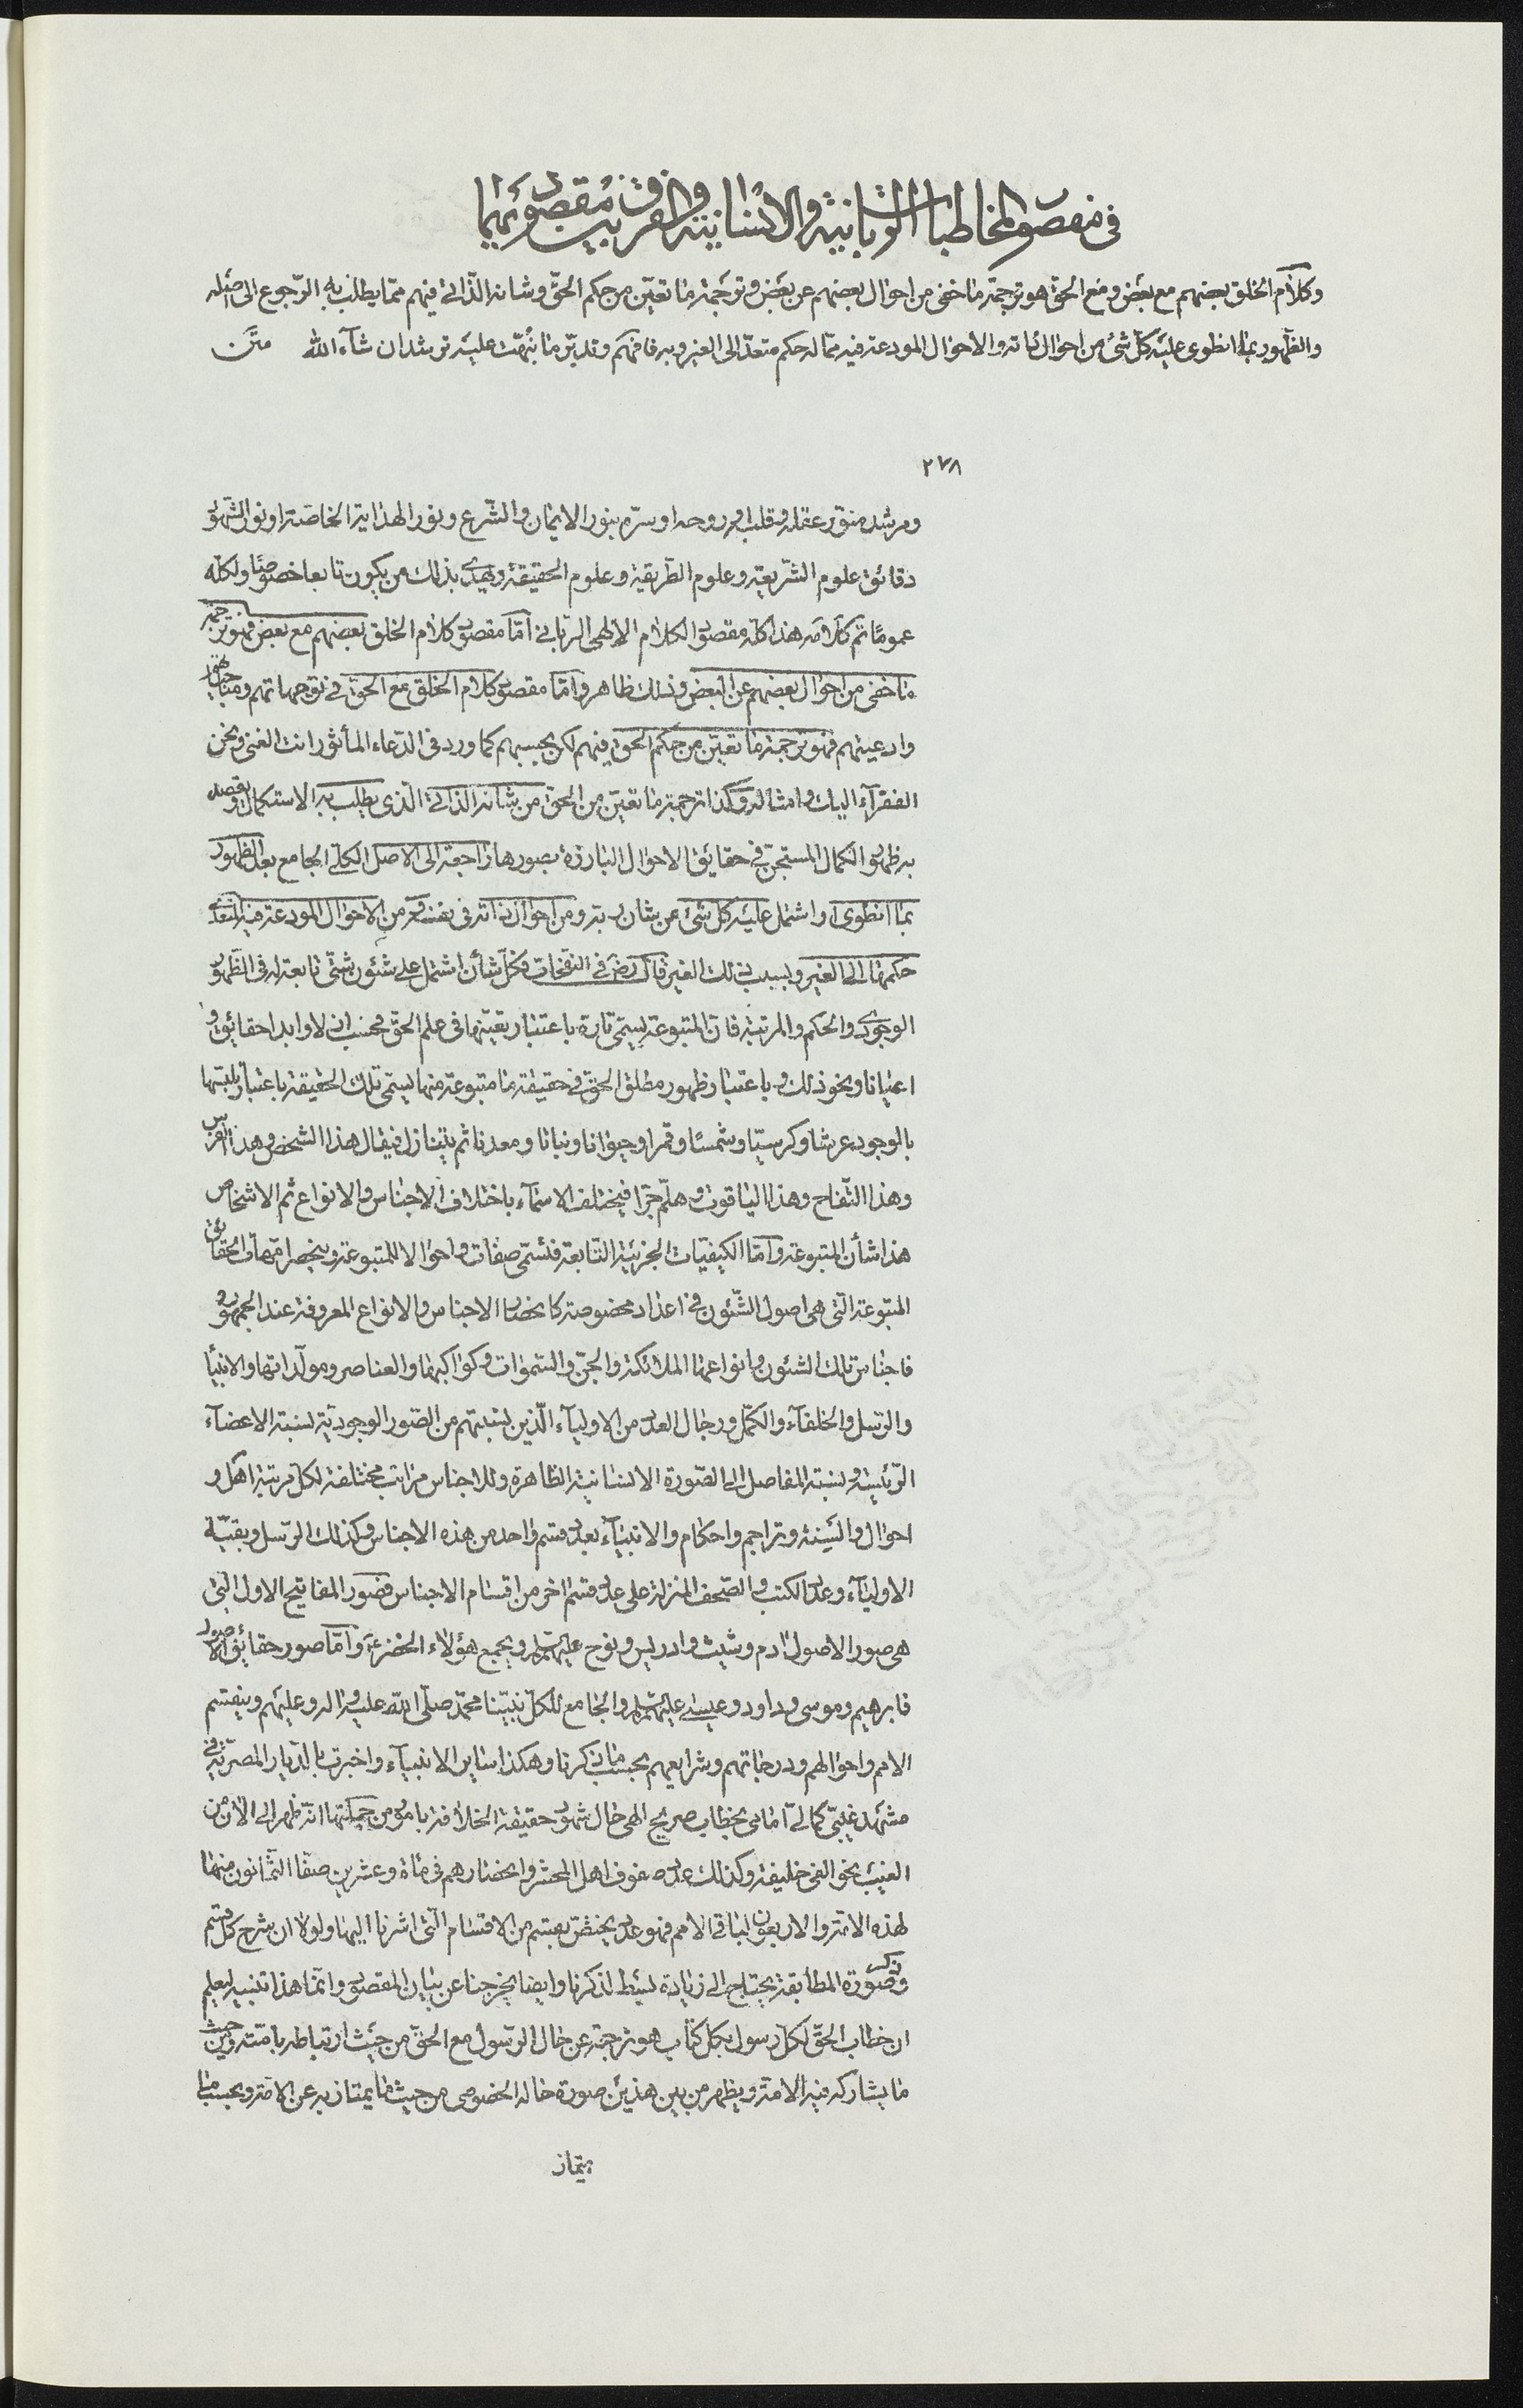 في مقصود المخاطبات الربانية والانسانية والفرق بين مقصوديهما
وكلام الخلق بعضهم مع بعض ومع الحق هو ترجمة ما خفي من احوال بعضهم عن بعض وترجمة ما تعين من حكم الحق وشانه الذاتي فيهم مما يطلب به الرجوع الى اصله
والظهور بما انطوى عليه كل شئ من احوال ذاته والاحوال المودعة فيه مما له حكم متعد الى الغير وبه فافهم وتدبر ما نبهت عليه ترشد ان شآء الله متن
٢٧٨
ومرشد منور عقله وقلبه وروحه او سره بنور الايمان والشرع ونور الهداية الخاصة او نور الشهود
دقائق علوم الشريعة وعلوم الطريقة وعلوم الحقيقة ويهدى بذلك من يكون تابعا خصوصا ولكله
عموما تم كلامه هذا كله مقصود الكلام الالهى الربانى اما مقصود كلام الخلق بعضهم مع بعض فهو ترجمة
ما خفي من احوال بعضهم عن البعض وذلك ظاهر واما مقصود كلام الخلق مع الحق في توجهاتهم ومناجاتهم
وادعيتهم فهو ترجمة ما تعين من حكم الحق فيهم لكن بحسبهم كما ورد في الدعاء المأثور انت الغنى ونحن
الفقرآء اليك وامثاله وكذا ترجمة ما تعين من الحق من شانه الذاتي الذي يطلب به الاستكمال ويقصد
به ظهور الكمال المستجن في حقايق الاحوال البارزة بصورها راجعة الى الاصل الكلى الجامع بعد الظهور
بما انطوى او اشتمل عليه كل شئ من شان ربه ومن احوال ذاته في نفسه ومن الاحوال المودعة فيه المتعدى
حكمها الى الغير وبسبب ذلك الغير قال رض في النفحات فكل شأن اشتمل على شئون شتى تابعة له في الظهور
الوجودى والحكم والمرتبة فان المتبوعة يسمى تارة باعتبار تعينها في علم الحق فحسب ازلا وابدا حقائق و
اعيانا ونحو ذلك وباعتبار ظهور مطلق الحق في حقيقة ما متبوعة منها يسمى تلك الحقيقة باعتبار تلبسها
بالوجود عرشا وكرسيا وشمسا وقمرا وحيوانا ونباتا ومعدنا ثم يتنازل فيقال هذا الشخص وهذا الفرس
وهذا التفاح وهذا الياقوت وهلم جرا فيختلف الاسمآء باختلاف الاجناس والانواع ثم الاشخاص
هذا شأن المتبوعة واما الكيفيات الجزئية التابعة فتسمى صفات واحوالا للمتبوعة وينحصر امهات الحقائق
المتبوعة التى هى اصول الشئون في اعداد مخصوصة كانحصار الاجناس والانواع المعروفة عند الجمهور
فاجناس تلك الشئون وانواعها الملائكة والجن والسموات وكواكبها والعناصر ومولداتها والانبيا
والرسل والخلفآء والكمل ورجال العدد من الاوليآء الذين نسبتهم من الصور الوجودية نسبة الاعضآء
الرئيسة ونسبة المفاصل الى الصورة الانسانية الظاهرة وللاجناس مراتب مختلفة لكل مرتبة اهل و
احوال والسنة وتراجم واحكام والانبيآء بعدد قسم واحد من هذه الاجناس وكذلك الرسل وبقية
الاوليآء وعدد الكتب والصحف المنزلة على عدد قسم اخر من اقسام الاجناس فصور المفاتيح الاول التى
هى صور الاصول ادم وشيث وادريس ونوح عليهم السلم ويجمع هؤلاء الخضر ع واما صور حقائق الاصول
فابرهيم وموسى وداود وعيسى عليهم السلم والجامع للكل نبينا محمد صلى الله عليه واله وعليهم وينقسم
الامم واحوالهم ودرجاتهم وشرايعهم بحسب ما ذكرنا وهكذا ساير الانبيآء واخبرت بالديار المصرية في
مشهد غيبى كمالى امامى بخطاب صريح الهى حال شهود حقيقة الخلافة بامور من جملتها انه ظهر الى الان من
الغيب نحو الفى خليفة وكذلك عدد صفوف اهل المحشر وانحصارهم في مائة وعشرين صفا الثمانون منها
لهذه الامة والاربعون لباقى الامم فهو عدد يختص بقسم من الاقسام التى اشرنا اليها ولولا ان شرح كل قسم
وذكر صورة المطابقة يحتاج الى زيادة بسط لذكرنا وايضا يخرجنا عن بيان المقصود وانما هذا تنبيه ليعلم
ان خطاب الحق لكل رسول بكل كتاب هو ترجمة عن حال الرسول مع الحق من حيث ارتباطه بامته ومن حيث
ما يشاركه فيه الامة ويظهر من بين هذين صورة حاله الخصوصى من حيث ما يمتاز به عن الامة وبحسب ما
يمتاز